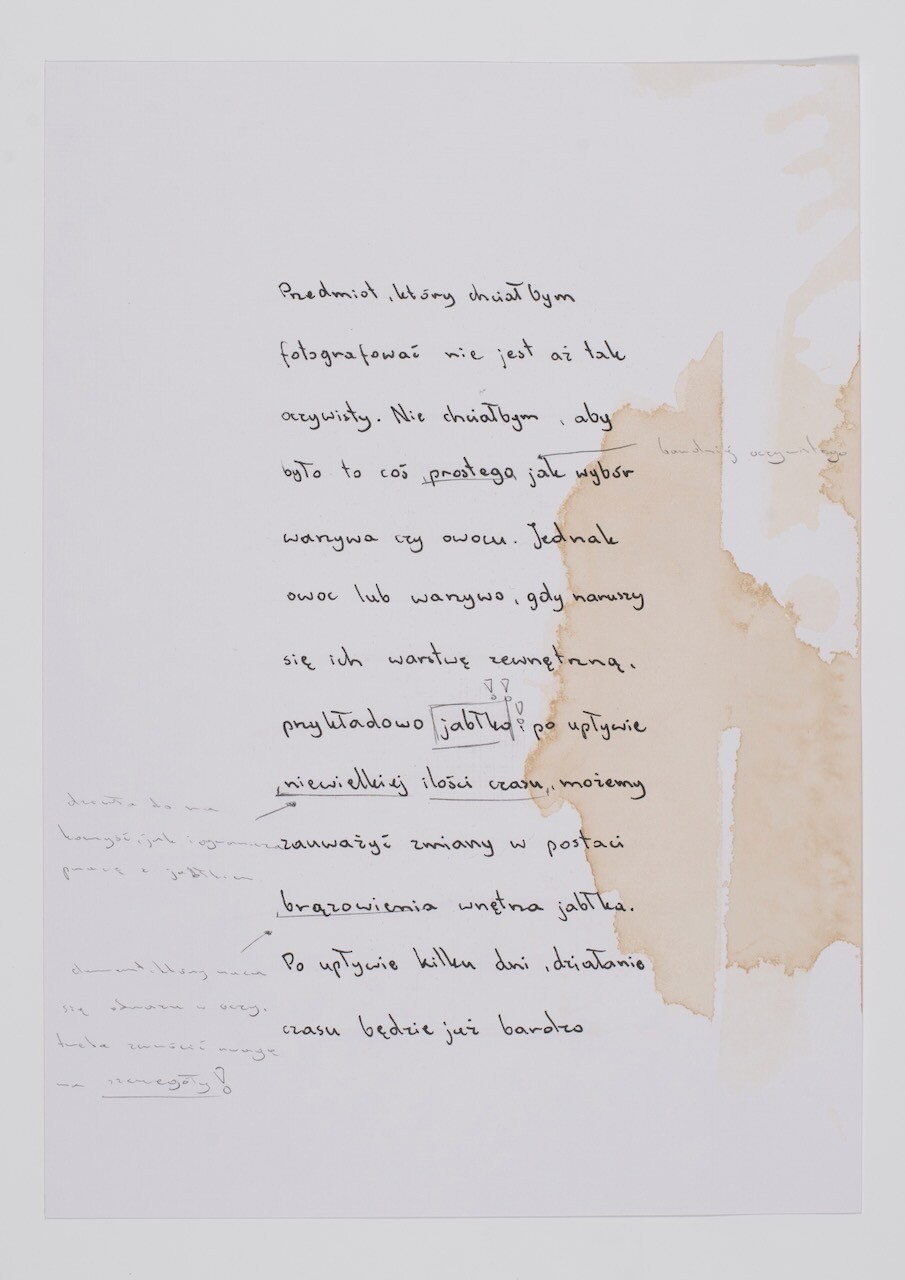 Przedmiot, który chciałbym
fotografować nie jest aż tak
oczywisty. Nie chciałbym, aby
bardziej oczywistego
było to coś prostego, jak wybór
warzywa czy owocu. Jednak
owoc lub warzywo, gdy naruszy
się ich warstwę zewnętrzną,
przykładowo jabłko: po upływie
niewielkiej ilości czasu, możemy
zauważyć zmiany w postaci
brązowienia wnętrza jabłka.
Po upływie kilku dni, działanie
czasu będzie już bardzo
działa do na
korzyść, jak i ogranicza
pracę z jabłkiem
element, który rzuca
się odrazu w oczy.
trzeba zwrócić uwagę
na szczegóły!